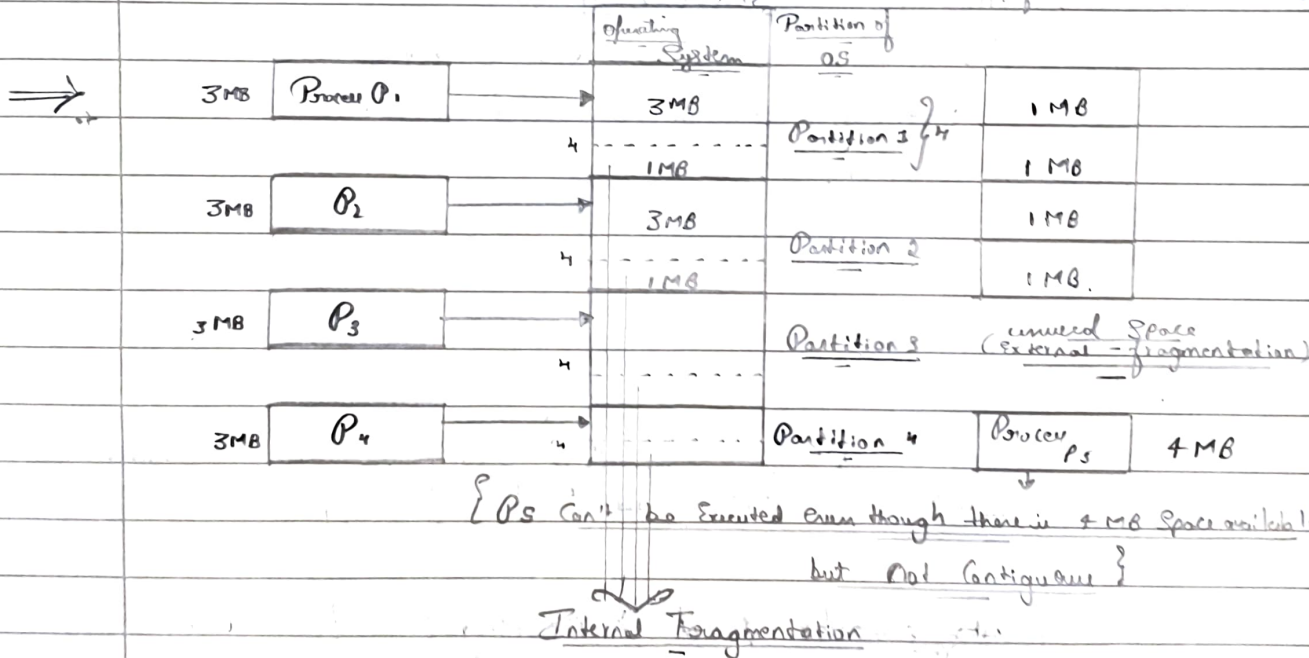 Operating System
Partition of OS
3MB Process P1 3MB 1 MB
4 Partition 1 } 4
1MB 1 MB
3MB P2 3MB 1 MB
4 Partition 2
1MB 1 MB.
3 MB P3 Partition 3 (unused Space
4 External - fragmentation)
3MB P4 4 Partition 4 Process P5 4 MB
{ P5 Can't be Executed even though there is 4 MB Space availabl
but not Contiguous }
Internal Fragmentation